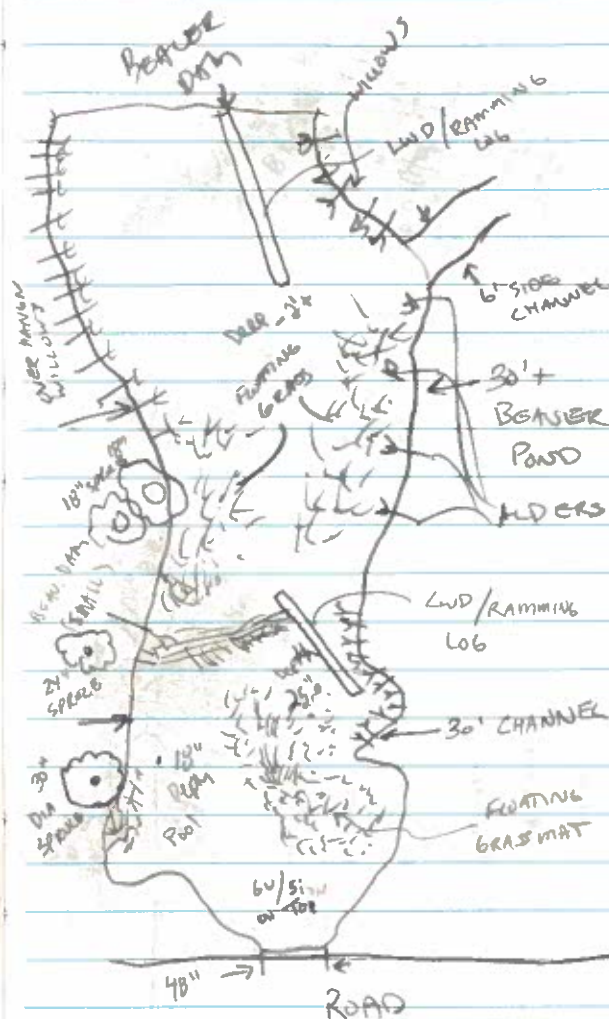 BEAVER
DAM
WILLOWS
LWD/RAMMING
LOG
6' SIDE
CHANNEL
OVER HANGN
WILLOWS
DEEP - 2'+
FLOATING
GRASS
30'+
BEAVER
POND
18" SPRUCE
ALDERS
BEAV. DAM
(SMALL)
LWD/RAMMING
LOG
24"
SPRUCE
30' CHANNEL
30"
DIA
SPRUCE
18"
DEPTH
POOL
FLOATING
GRASSMAT
GV/Si
ON TOP
48"
ROAD